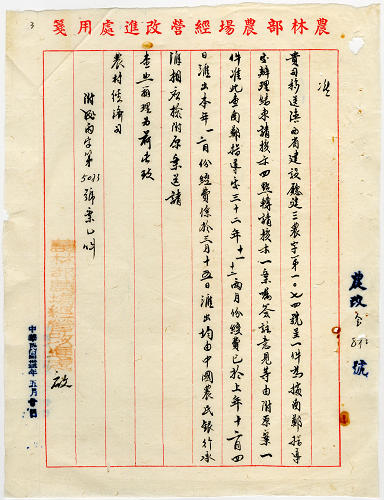 農林部農場經營改進處用箋
准
貴司移送陝西省建設廳建三農字第一〇七四號呈一件為據南鄭指導
辦理結束請核示四點轉請核示一案囑簽註意見等由附原案一
件准此查南鄭指導三十二年十一十二兩月份經費已於上年十二月四
日滙出本年一二月份經費係於三月十五日滙出均由中國農民銀行承
滙相應檢附原案送請
查照辦理為荷此致
農村經濟司
附丙字第5033號案乙件
啟
農改字號
中華民國年五月日
3